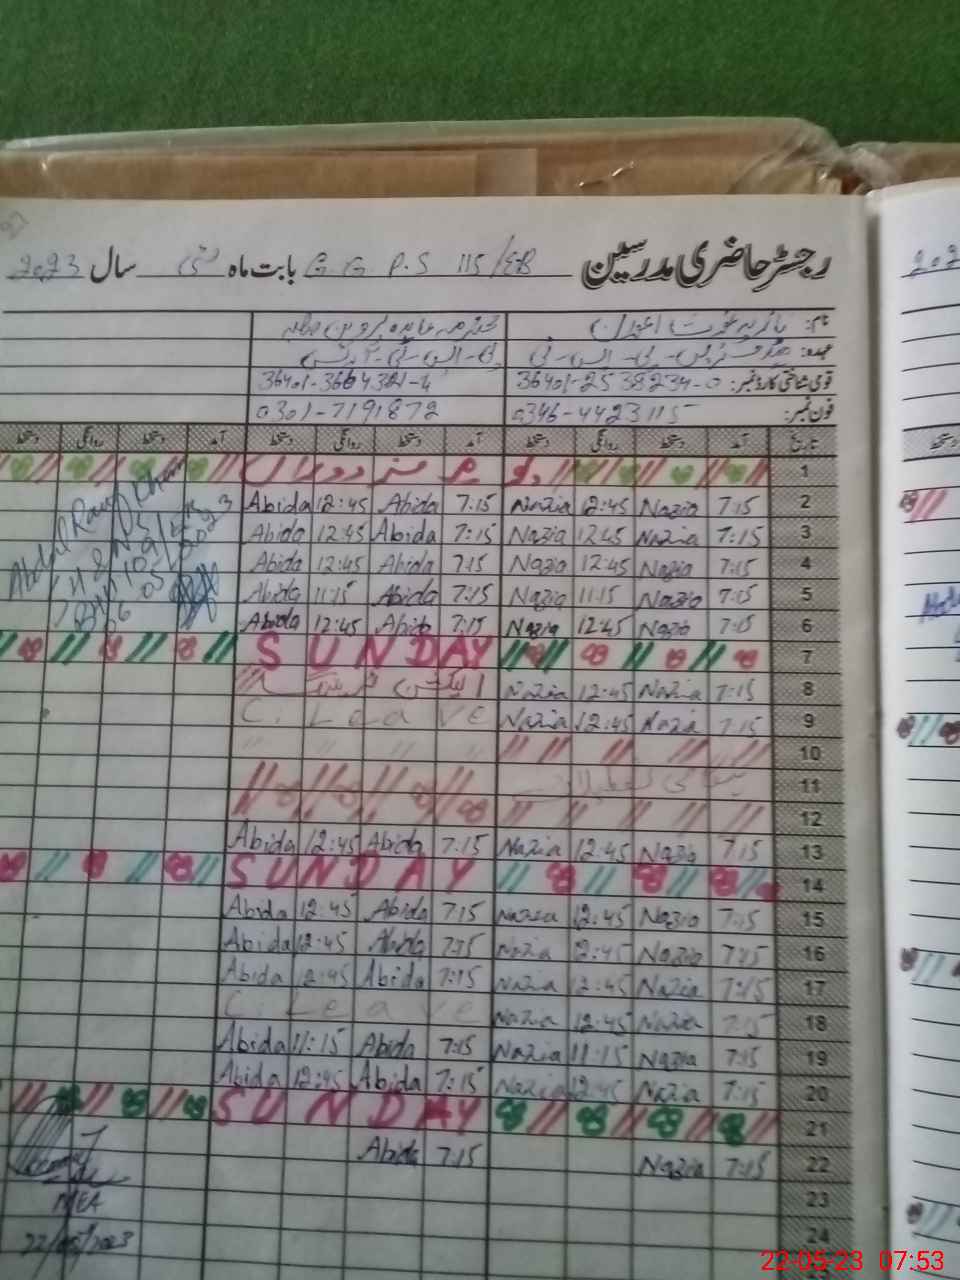 رجسٹر حاضری مدرسین G.G P.S 115/EB بابت ماہ مئی سال 2023
نام:
عہدہ:
قومی شناختی کارڈ نمبر: 36401-2538234-0
فون نمبر: 0346-4423115 0301-7191872
تاریخ آمد دستخط روانگی دستخط آمد دستخط روانگی دستخط آمد دستخط روانگی دستخط
1
2 7:15 Nazia 12:45 Nazia 7:15 Abida 12:45 Abida
3 7:15 Nazia 12:45 Nazia 7:15 Abida 12:45 Abida
4 7:15 Nazia 12:45 Nazia 7:15 Abida 12:45 Abida
5 7:15 Nazia 11:15 Nazia 7:15 Abida 11:15 Abida
6 7:15 Nazia 12:45 Nazia 7:15 Abida 12:45 Abida
7 SUNDAY
8 7:15 Nazia 12:45 Nazia
9 7:15 Nazia 12:45 Nazia C. Leave
10
11
12
13 7:15 Nazia 12:45 Nazia 7:15 Abida 12:45 Abida
14 SUNDAY
15 7:15 Nazia 12:45 Nazia 7:15 Abida 12:45 Abida
16 7:15 Nazia 12:45 Nazia 7:15 Abida 12:45 Abida
17 7:15 Nazia 12:45 Nazia 7:15 Abida 12:45 Abida
18 7:15 Nazia 12:45 Nazia C. Leave
19 7:15 Nazia 11:15 Nazia 7:15 Abida 11:15 Abida
20 7:15 Nazia 12:45 Nazia 7:15 Abida 12:45 Abida
21 SUNDAY
22 7:15 Nazia 7:15 Abida
23
24
Abdul Rauf Khan
MEA
22/05/2023
22-05-23 07:53